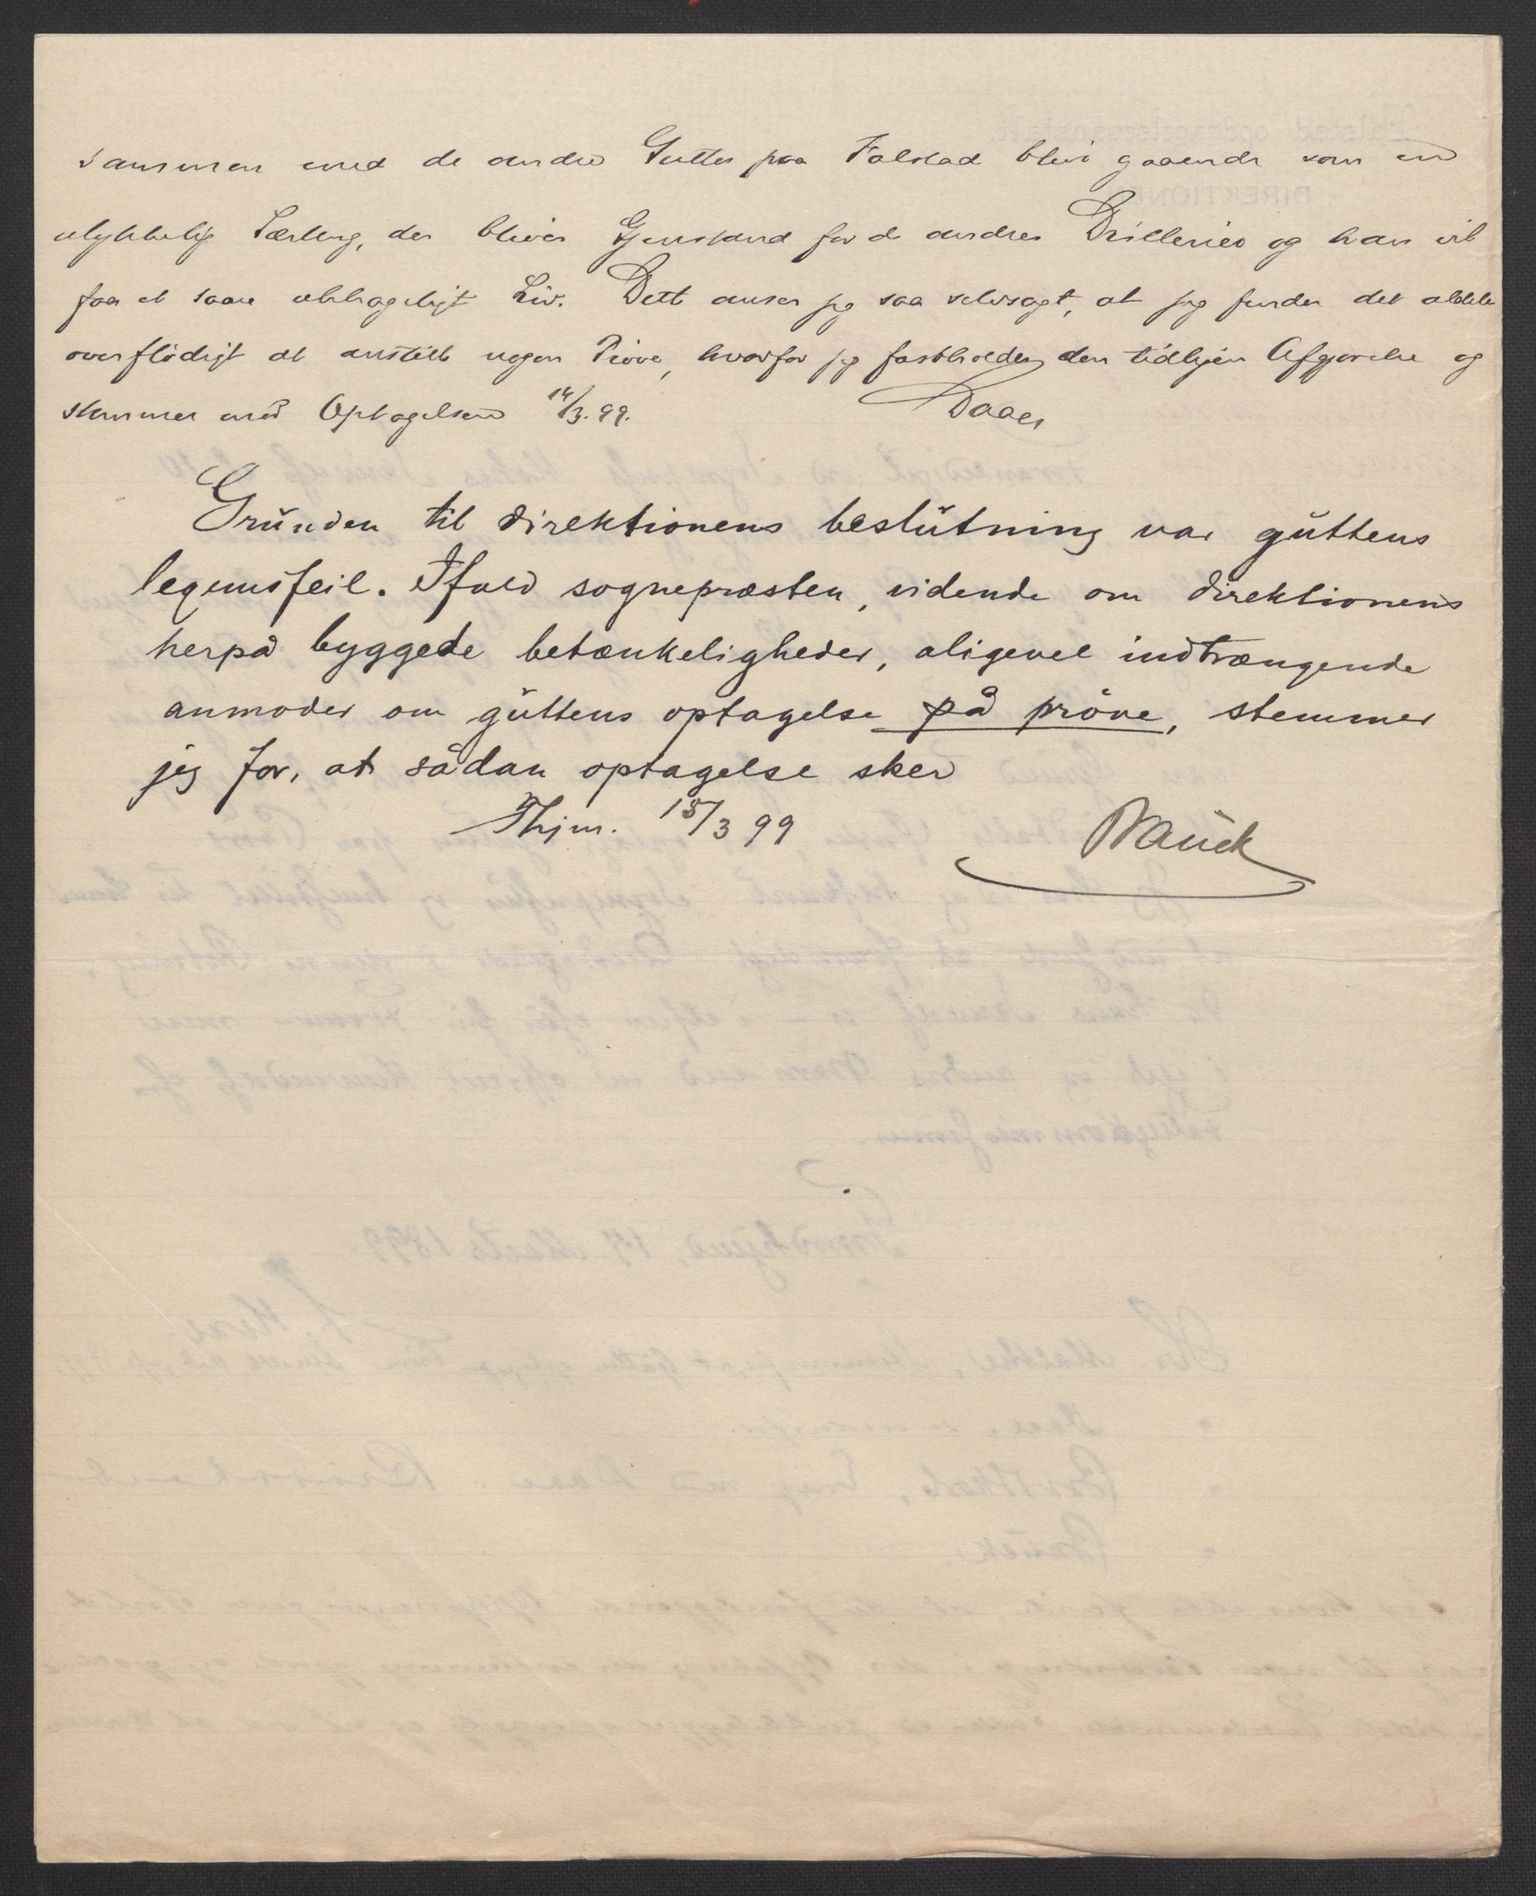 sammen med de andre Gutter paa Falstad blive gaaende som en
ulykkelig Særling, der bliver Gjenstand for de andres Drillerier og han vil
faa et saare ubehageligt Liv. Dette anser jeg saa selvsagt, at jeg finder det aldeles
overflødigt at anstille nogen Prøve, hvorfor jeg fastholder den tidligere Afgjørelse og
stemmer mod Optagelsen 14/3. 99. Daae
Grŭnden til direktionens beslŭtning var gŭttens
legemsfeil. Ifald sognepræsten, vidende om direktionens
herpå byggede betænkeligheder, aligevel indtrængende
anmoder om gŭttens optagelse på pröve, stemmer
jeg for, at sådan optagelse sker
Thjm. 15/3 99 Bauck